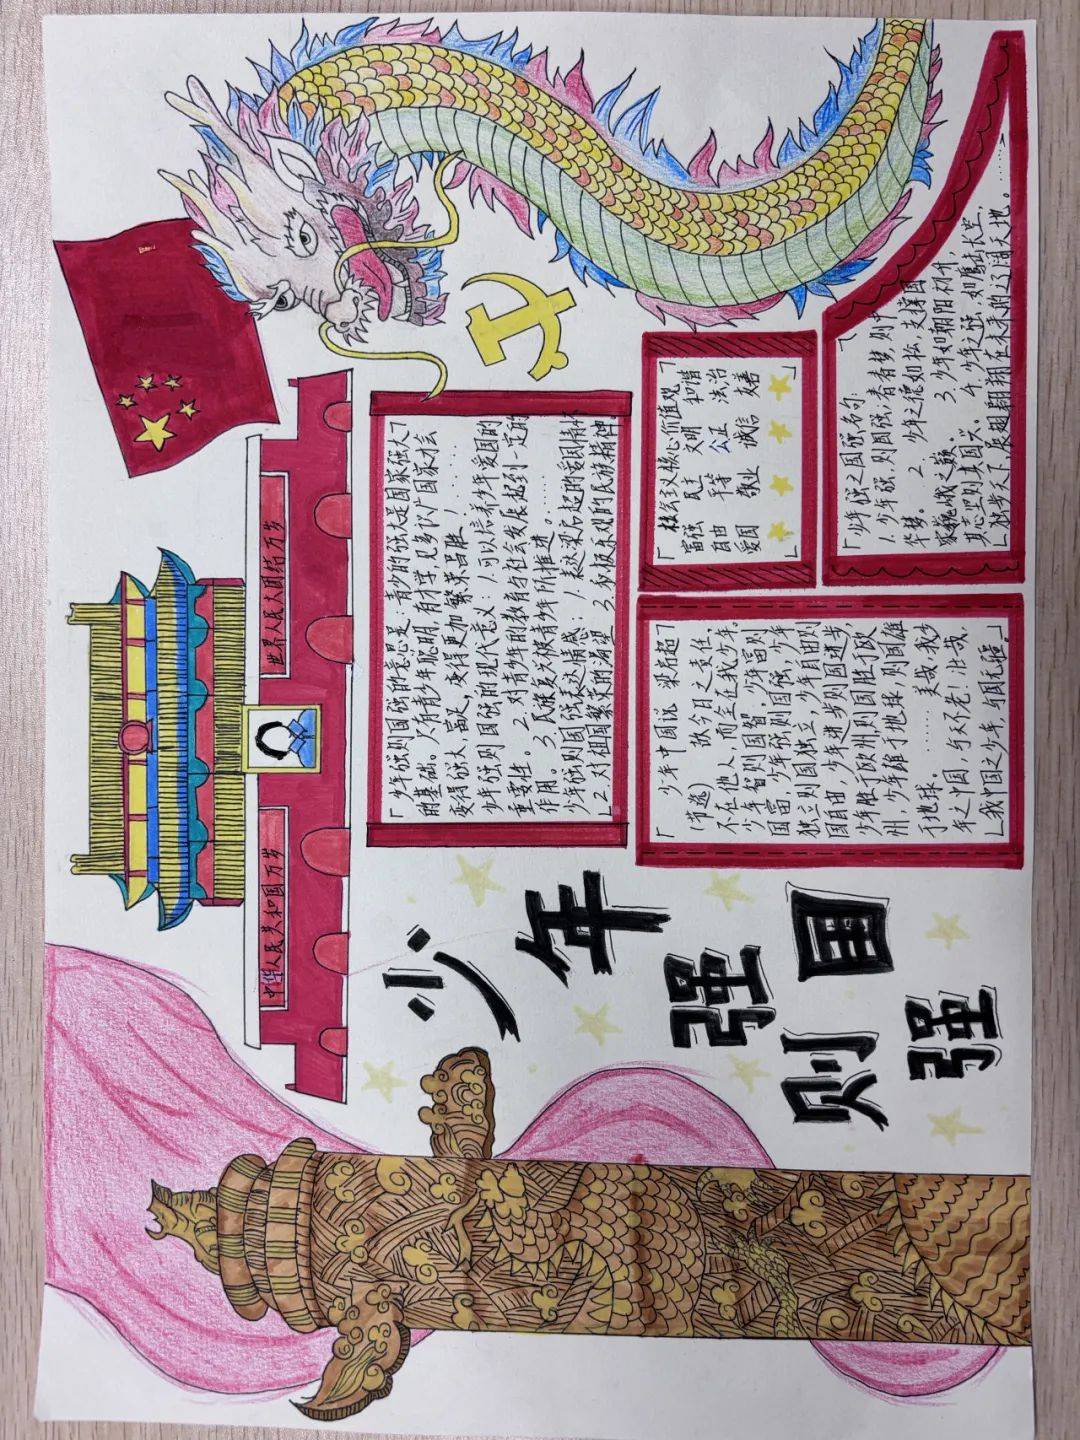 中华人民共和国万岁
世界人民大团结万岁
少年
强
则国
强
「少年强则国强的意思是:青少的强大是国家强大
的基础。只有青少年聪明,有才学,见多识广国家才会
变得强大,富足,变得更加繁荣昌盛!
少年强则国强的现代意义:1.可以培养少年爱国的
重要性。2.对青少年的教育身社会发展起到一定的
作用。3.民族复兴被青少年所推进。……
少年强则国强表达情感:1.赵梁启起的爱国情怀
2.对祖国繁荣的渴望 3.和极乐观的民族精神」
「少年中国说 梁启超
(节选) 故今日之责任,
不在他人,而全在我少年。
少年智则国智,少年富则
国富,少年强则国强,少年
独立则国独立,少年自由则
国自由,少年进步则国进步,
少年胜于欧洲,则国胜于欧
州,少年雄于地球,则国雄
于地球。…… 美哉我少
年之中国,与天不老!壮哉
我中国之少年,与国无疆」
「核会主义核心价值观
富强 民主 文明 和谐
自由 平等 公正 法治
爱国 敬业 诚信 友善
」
「少年强之国强名句
1.少年强,则国强,青春梦,则中
华梦。 2.少年之德如松,支撑国
家巍峨之魏。 3.少年如朝阳初升
其志坚则其国兴。 4.少年之强,如鹰击长空,
独步天下,展翅翱翔在未来的辽阔天地。……」